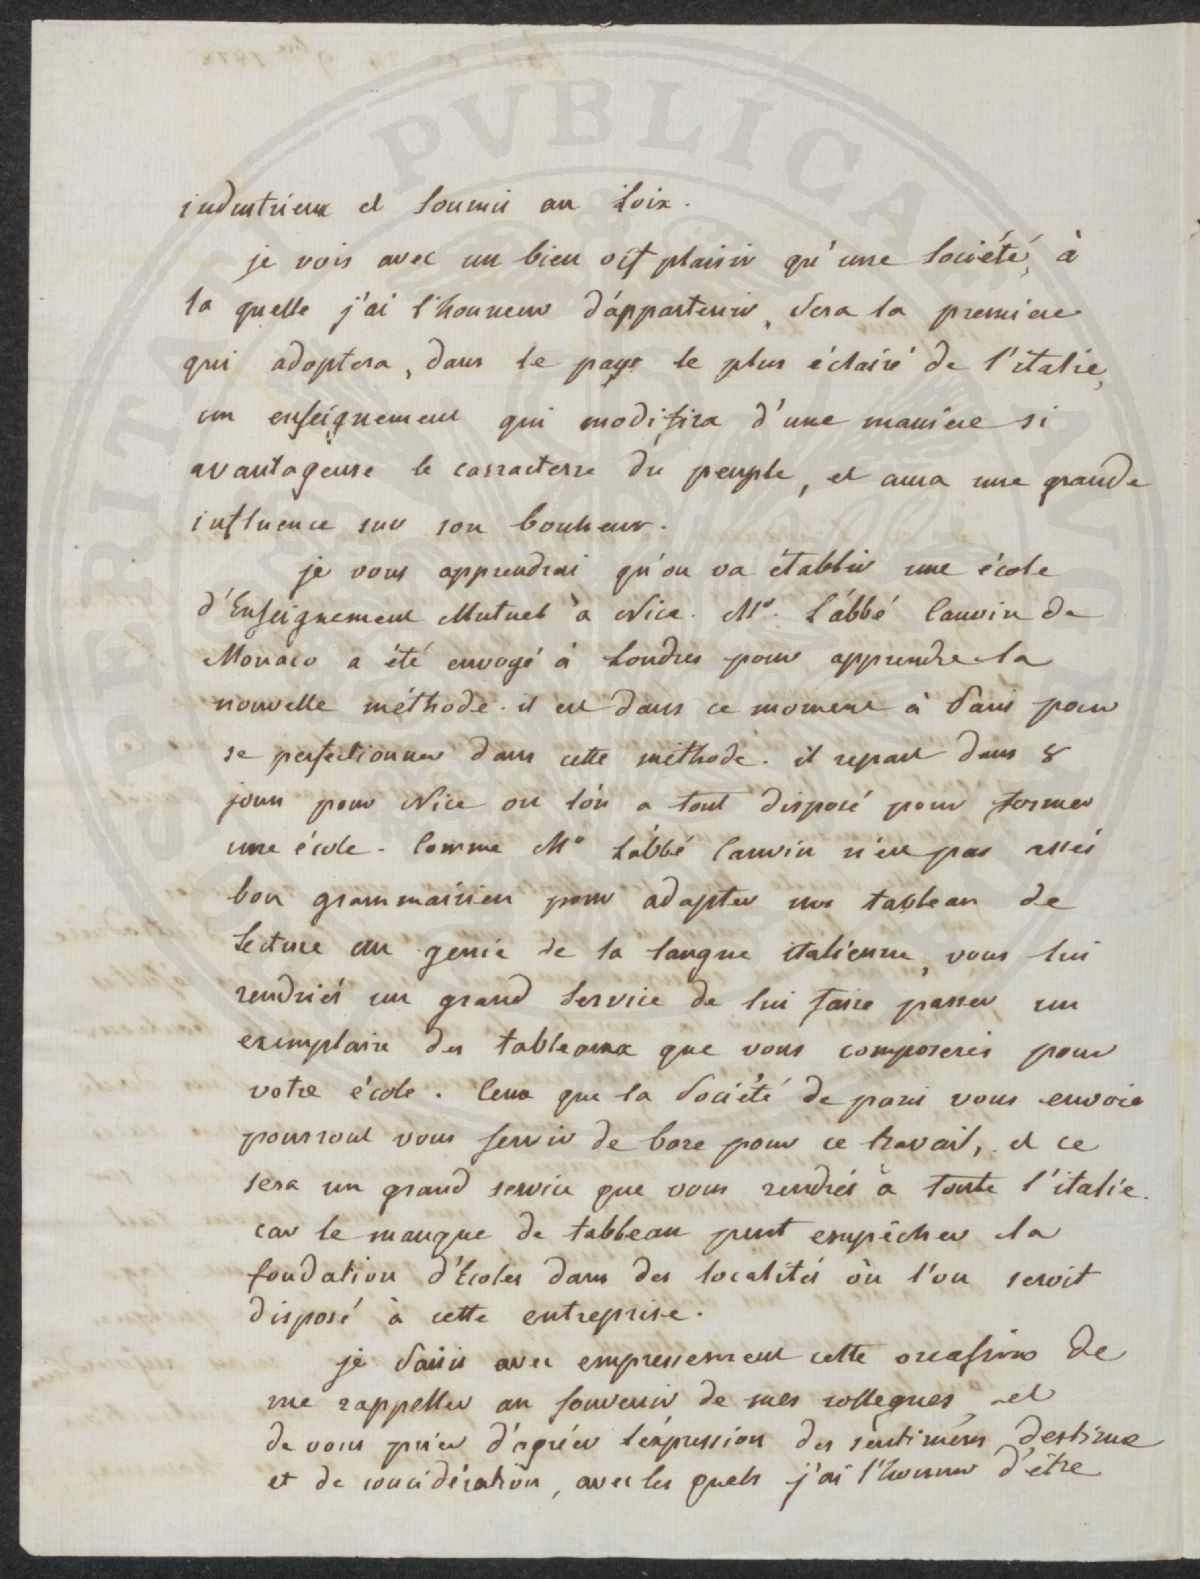 industrieux et soumis au Loix.
je vois avec un bien vif plaisir qu'une Société, à
la quelle j'ai l'honneur d'appartenir, sera la premiere
qui adoptera, dans le pays le plus éclairé de l'italie,
un enseignement qui modifira d'une maniere si
avantageuse le carractere du peuple, et aura une grande
influence sur son bonheur.
je vous apprendrai qu'on va établir une école
d'Enseignement Mutuel à Nice. Mr. L'abbé Cauvin de
Monaco a été envoyé à Londres pour apprendre la
nouvelle méthode. il est dans ce moment à Paris pour
se perfectionner dans cette méthode. il repart dans 8
jours pour Nice ou l'on a tout disposé pour former
une école. Comme Mr L'abbé Cauvin n'est pas assés
bon grammairien pour adapter nos tableau de
Lecture au genie de la langue italienne, vous lui
rendriés un grand Service de lui faire passer un
exemplaire des tableaux que vous composerés pour
votre école. Ceux que la Société de paris vous envoie
pourront vous servir de base pour ce travail, et ce
sera un grand service que vous rendrés à toute l'italie.
car le manque de tableau peut empêcher la
fondation d'Ecoles dans des localités où l'on seroit
disposé à cette entreprise.
je saisis avec empressement cette occasion de
me rappeller au souvenir de mes collegues, et
de vous prier d'agréer l'expression des sentimens destime
et de concidération, avec les quels j'ai l'honneur d'être
PUBLICAE